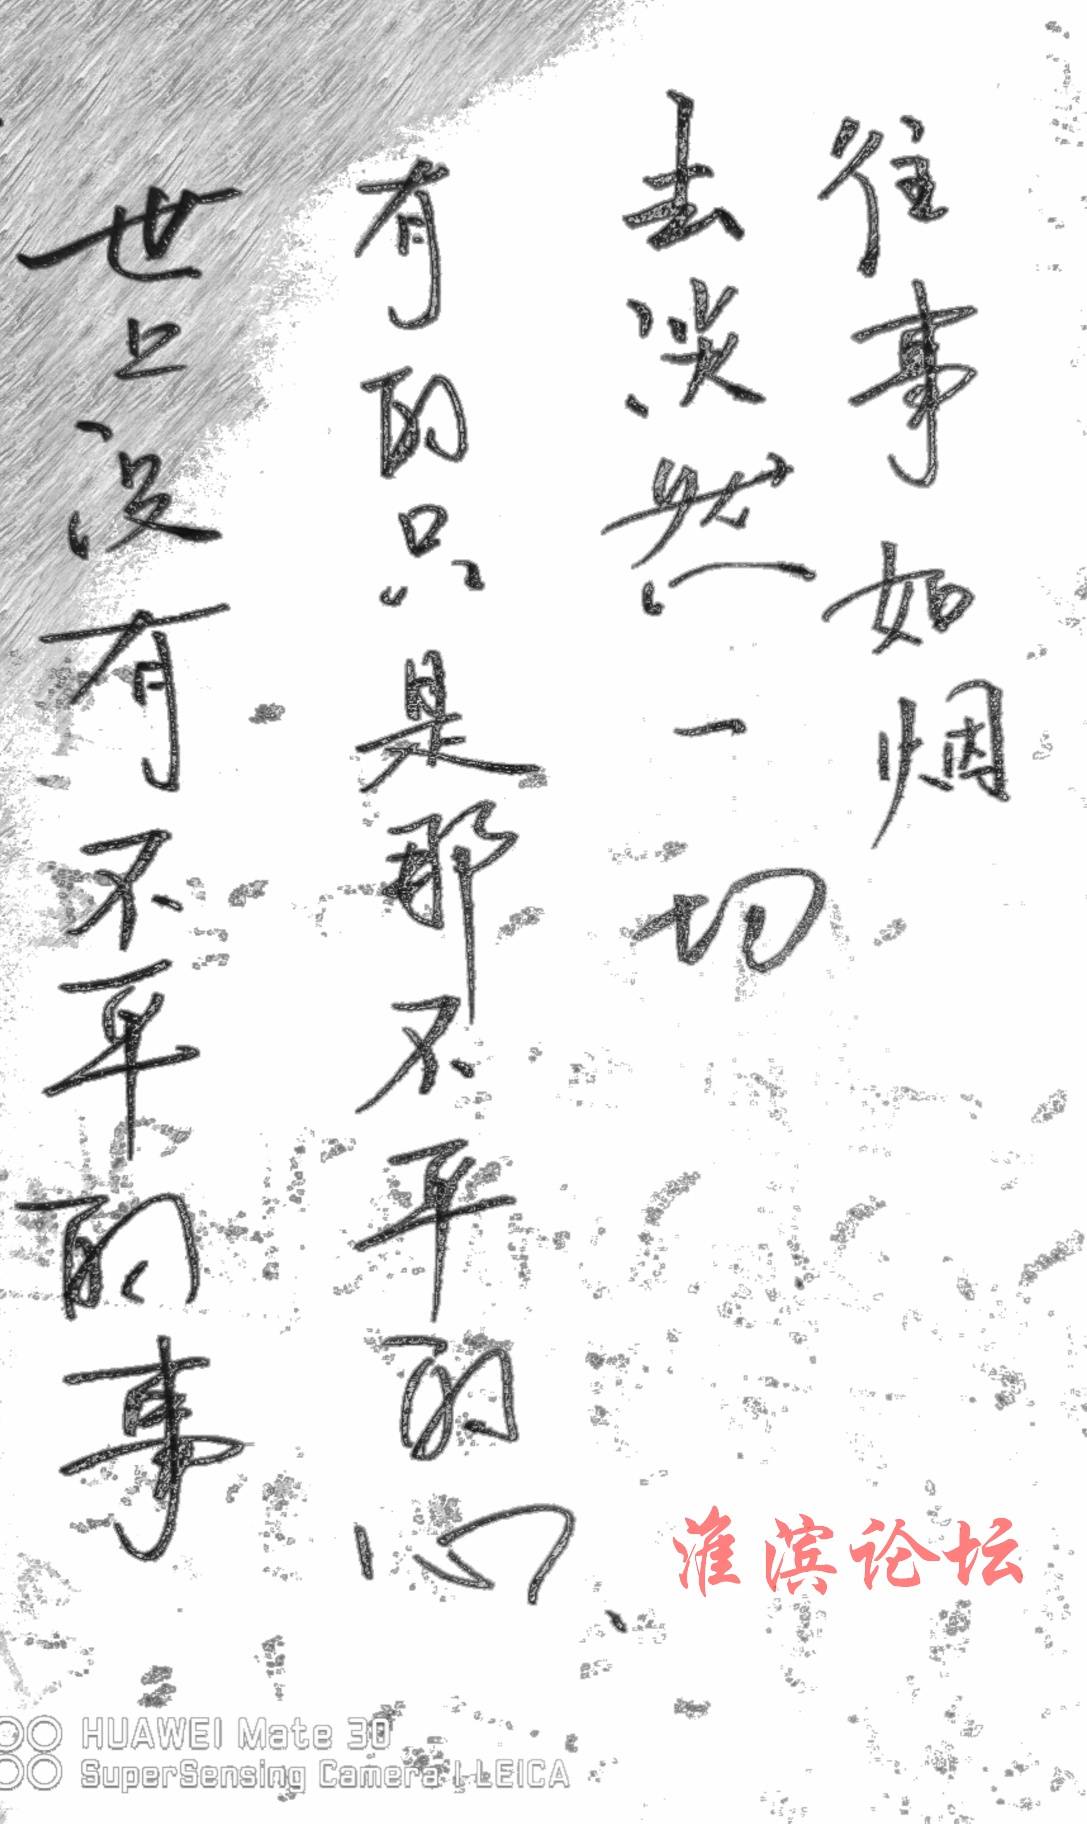 往事如烟
去淡然一切
有的只是那不平的心
世上没有不平的事
淮滨论坛
HUAWEI Mate 30
SuperSensing Camera | LEICA